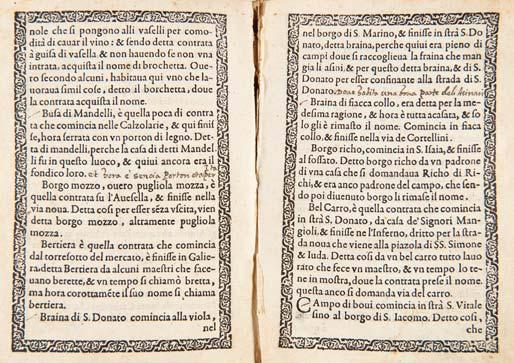 nole che si pongono alli vaselli per como-
dità di cauar il vino: & sendo detta contrata
à guisa di vasella, & non hauendo se non vna
intrata, acquista il nome di brochetta. Oue-
ro secondo alcuni, habitaua qui vno che la-
uoraua simil cose, detto il borchetto, doue
la contrata acquista il nome.
Busa di Mandelli, è quella poca di contra
ta che comincia nelle Calzolarie, & qui finis-
se, hora serrata con vn porton di legno. Det-
ta di mandelli, perche la casa di detti Mandel
li fu in questo luoco, & quiui ancora era il
fondico loro. et hora è senza Porton
Borgo mozzo, ouero pugliola mozza, è
quella contrata fu l'Auesella, & finisse nella
via noua. Detta cosi per esser sẽza vscita, vien
detta borgo mozzo, altramente pugliola
mozza.
Bertiera è quella contrata che comincia
dal torresotto del mercato, è finisse in Galie-
ra, detta Bertiera da alcuni maestri che face-
uano berette, & vn tempo si chiamò bretta,
ma hora corottamẽte il suo nome si chiama
bertiera.
Braina di S. Donato comincia alla viola,
nel
nel borgo di S. Marino, & finisse in strà S. Do
nato, detta braina, perche quiui era pieno di
campi doue si raccoglieua la fraina che man
gia li asini, & per questo detta braina, & di S.
Donato per esser confinante alla strada di S.
Donato. una parte deli
Braina di fiacca collo, era detta per la me-
desima ragione, & hora è tutta acasata, & so-
lo gli è rimasto il nome. Comincia in fiacca
collo, & finisse nella via de Cortellini.
Borgo richo, comincia in S. Isaia, & finisse
al fossato. Detto borgo richo da vn padrone
di vna casa che si domandaua Richo di Ri-
chi, & era anco padrone del campo, che sen-
do poi diuenuto borgo li rimase il nome.
Bel Carro, è quella contrata che comincia
in strà S. Donato, da casa de' Signori Man-
gioli, & finisse ne l'Inferno, dritto per la stra-
da noua che viene alla piazola di SS. Simone
& Iuda. Detta cosi da vn bel carro tutto lauo
rato che fece vn maestro, & vn tempo lo te-
ne in mostra, doue la contrata prese il nome.
questa anco si domanda via del carro.
Campo di boui comincia in strà S. Vitale
sino al borgo di S. Iacomo. Detto cosi,
che